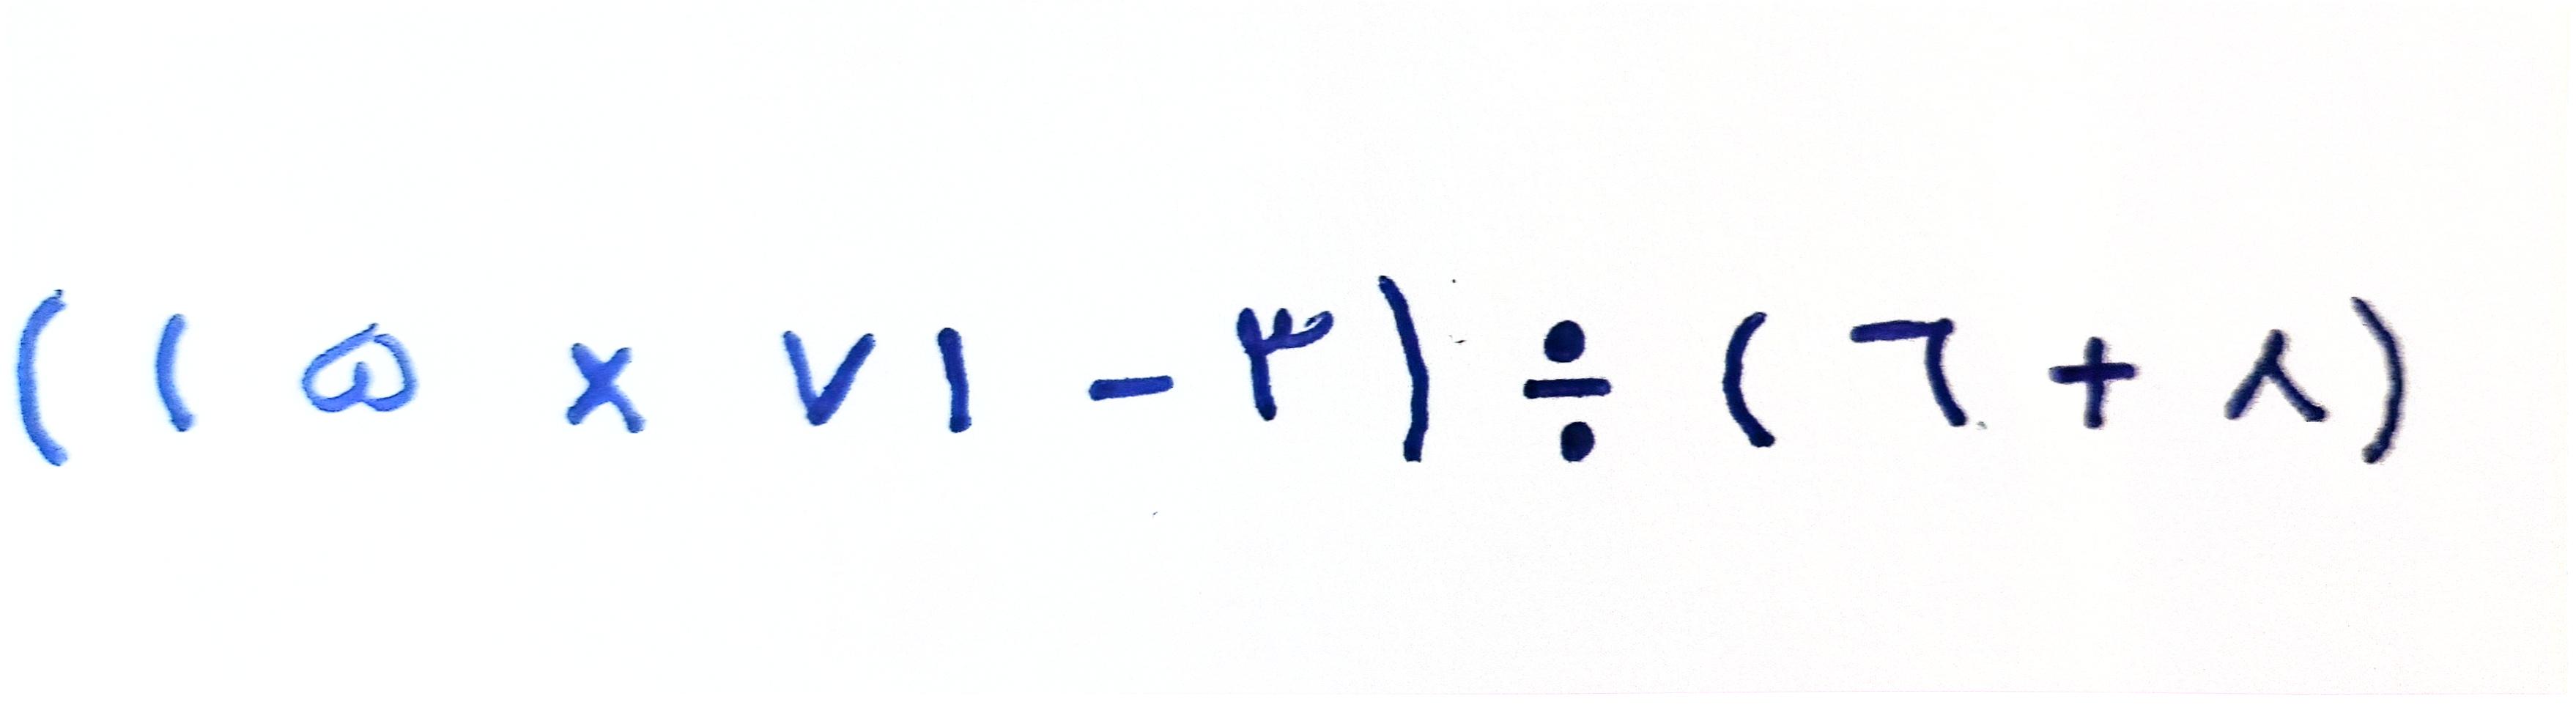 (۱۵ × ۷۱ - ۳) ÷ (٦ + ۸)